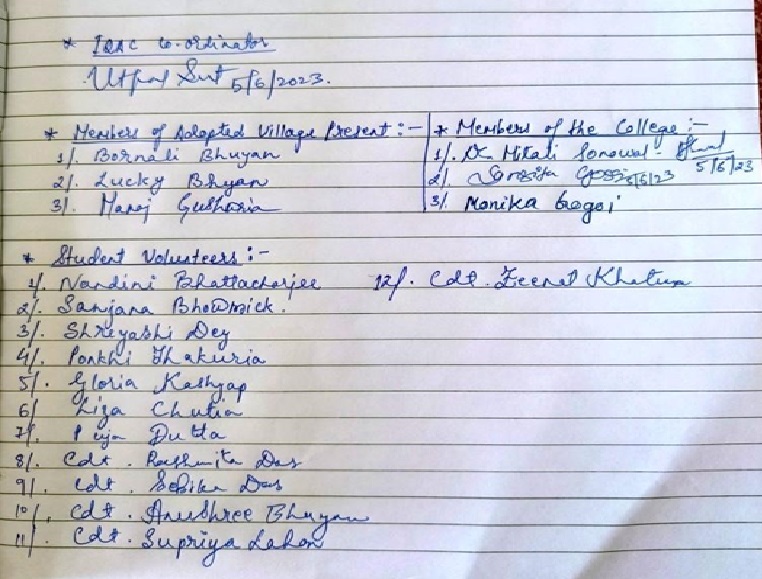 * IQAC Co-ordinator
Utpal Sut 5/6/2023.
* Members of Adopted Village Present :-
1/. Bornali Bhuyan
2/. Lucky Bhyan
3/. Manoj
* Members of the College :-
1/. Dr. Mitali Sonowal - 5/6/23
2/. 5/6/23
3/. Monika Gogoi
* Student Volunteers :-
1/. Nandini Bhattacharjee
2/. Sanjana Bhowmick.
3/. Shreyashi Dey
4/. Porkhi Thakuria
5/. Gloria Kashyap
6/ Liza Chutia
7/. Puja Dutta
8/. Cdt. Rashmita Das
9/. Cdt. Das
10/. Cdt. Anushree Bhuyan
11/. Cdt. Supriya Lahon
12/. Cdt. Zeenat Khatun